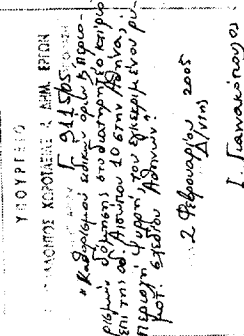 ΥΠΟΥΡΓΕΙΟ
ΠΕΡΙΒΑΛΛΟΝΤΟΣ ΧΩΡΟΤΑΞΙΑΣ & ΔΗΜ. ΕΡΓΩΝ
F 9115/05
"Καθορισμού ειδικών όρων & περιο-
ρισμών δόμησης στο διατηρητέο κτίριο
επί της οδ. Αισώπου 10 στην Αθήνα,
περιοχή Ψυρρή του εγκεκριμένου ρυ-
μοτ. σχεδίου Αθηνών"
2 Φεβρουαρίου 2005
Δ/ντής
Ι. Γιαννακόπουλος